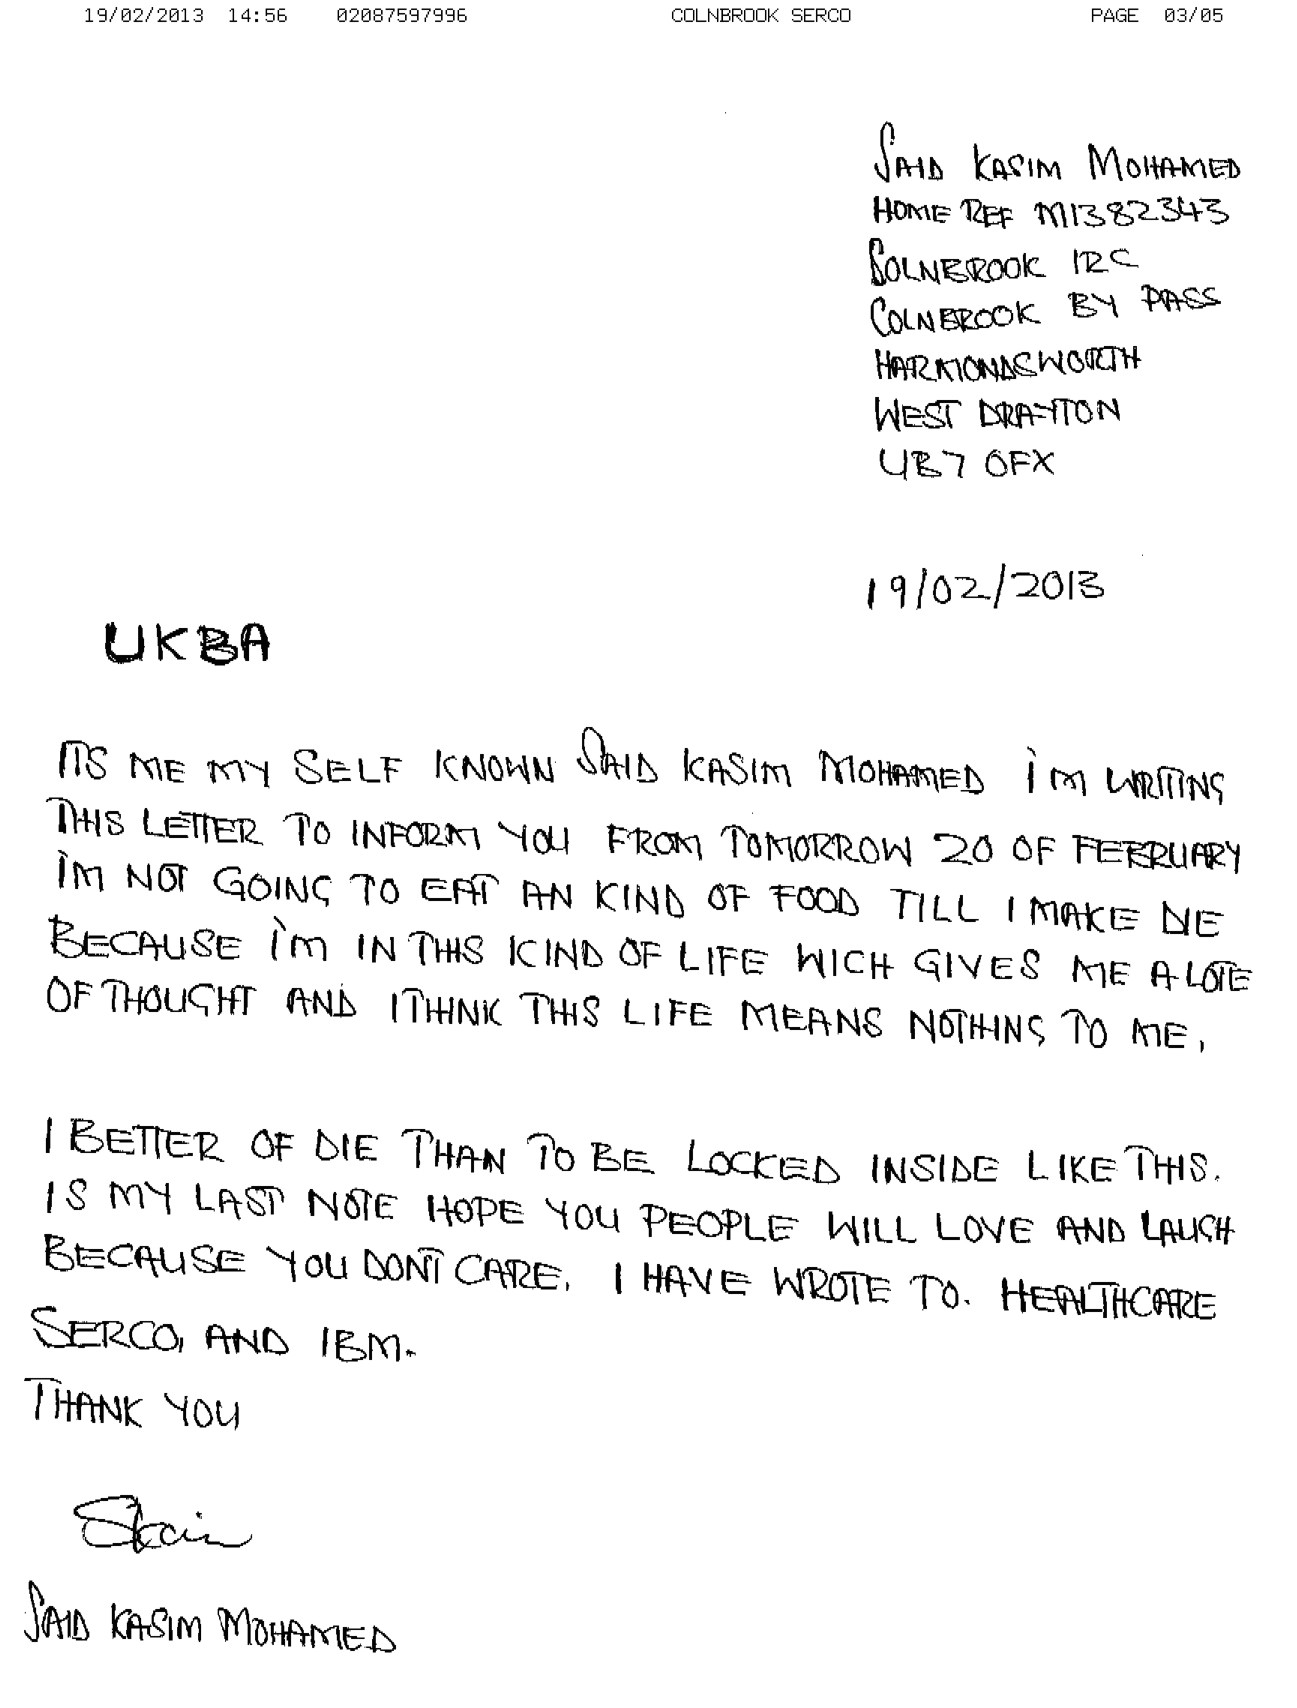 19/02/2013 14:56 02087597996 COLNBROOK SERCO PAGE 03/05
SAID KASIM MOHAMED
HOME REF M1382343
COLNBROOK IRC
COLNBROOK BY PASS
HARMONDSWORTH
WEST DRAYTON
UB7 0FX
19/02/2013
UKBA
ITS ME MY SELF KNOWN SAID KASIM MOHAMED I'M WRITING
THIS LETTER TO INFORM YOU FROM TOMORROW 20 OF FEBRUARY
I'M NOT GOING TO EAT AN KIND OF FOOD TILL I MAKE DIE
BECAUSE I'M IN THIS KIND OF LIFE WICH GIVES ME A LOTE
OF THOUGHT AND I THINK THIS LIFE MEANS NOTHING TO ME,
I BETTER OF DIE THAN TO BE LOCKED INSIDE LIKE THIS.
IS MY LAST NOTE HOPE YOU PEOPLE WILL LOVE AND LAUGH
BECAUSE YOU DON'T CARE. I HAVE WROTE TO. HEALTHCARE
SERCO, AND IBM.
THANK YOU
SAID KASIM MOHAMED